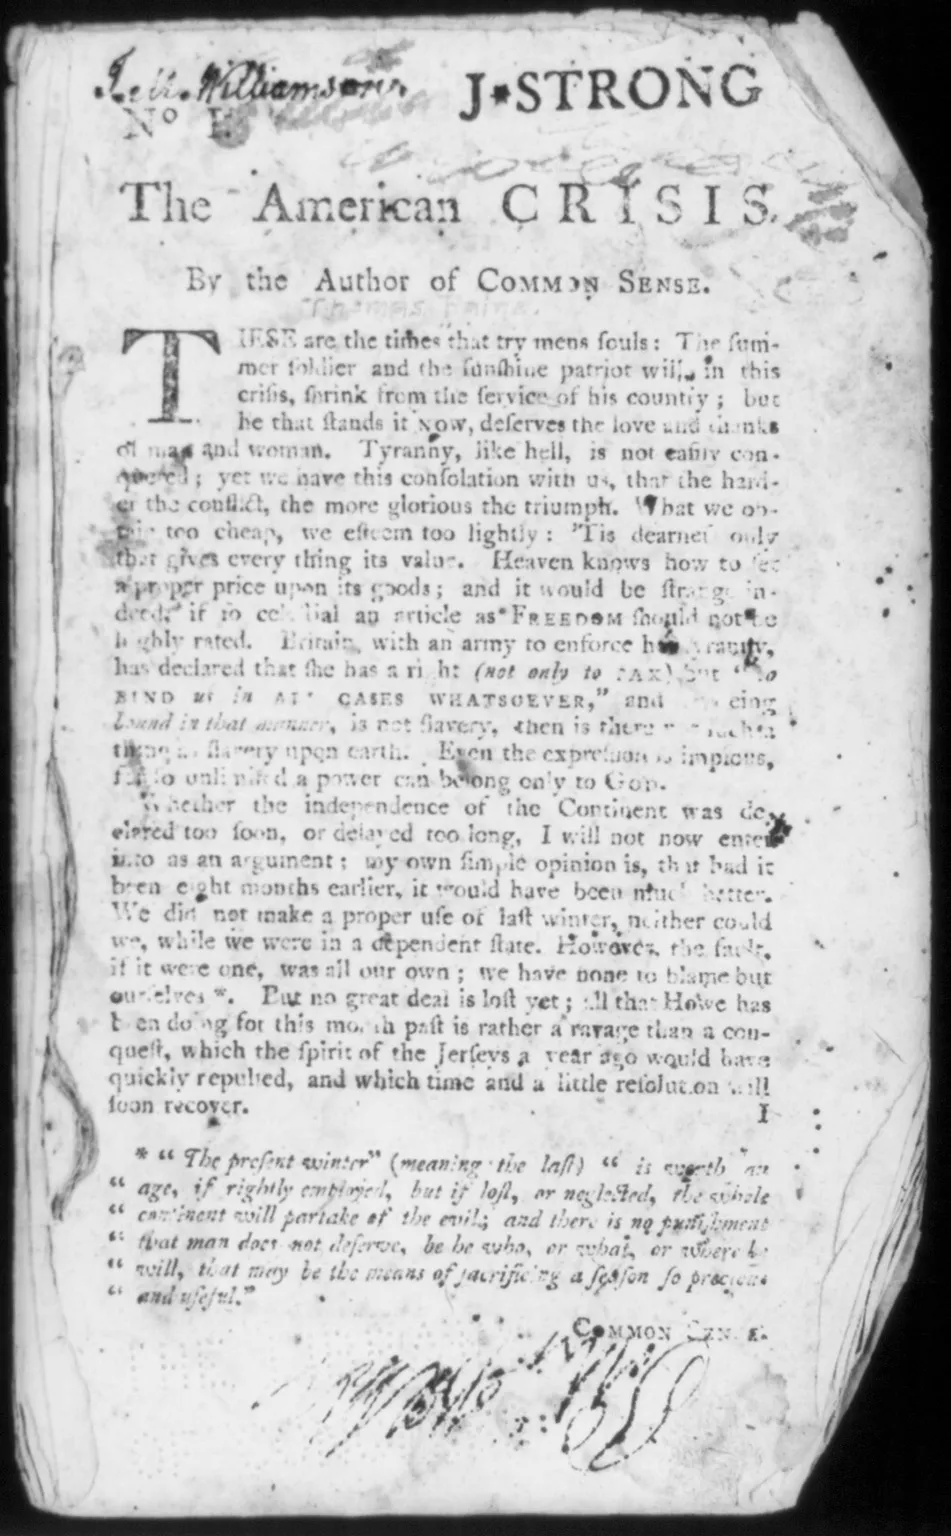 Williamson
J*STRONG
No I.
The American CRISIS.
By the Author of COMMON SENSE.
Thomas Paine.
THESE are the times that try mens ſouls: The ſum-
mer ſoldier and the ſunſhine patriot will, in this
criſis, ſhrink from the ſervice of his country; but
he that ſtands it NOW, deſerves the love and thanks
of man and woman. Tyranny, like hell, is not eaſily con-
quered; yet we have this conſolation with us, that the hard-
er the conflict, the more glorious the triumph. What we ob-
tain too cheap, we eſteem too lightly: 'Tis dearneſs only
that gives every thing its value. Heaven knows how to ſet
a proper price upon its goods; and it would be ſtrange in-
deed, if ſo celeſtial an article as FREEDOM ſhould not be
highly rated. Britain, with an army to enforce her tyranny,
has declared that ſhe has a right (not only to TAX) but "to
BIND us in ALL CASES WHATSOEVER," and being
bound in that manner, is not ſlavery, then is there not ſuch a
thing as ſlavery upon earth. Even the expreſſion is impious,
for ſo unlimited a power can belong only to GOD.
Whether the independence of the Continent was de-
clared too ſoon, or delayed too long, I will not now enter
into as an argument; my own ſimple opinion is, that had it
been eight months earlier, it would have been much better.
We did not make a proper uſe of laſt winter, neither could
we, while we were in a dependent ſtate. However, the fault,
if it were one, was all our own; we have none to blame but
ourſelves *. But no great deal is loſt yet; all that Howe has
been doing for this month paſt is rather a ravage than a con-
queſt, which the ſpirit of the Jerſeys a year ago would have
quickly repulſed, and which time and a little reſolution will
ſoon recover.
I
* " The preſent winter" (meaning the laſt) " is worth an
" age, if rightly employed, but if loſt, or neglected, the whole
" continent will partake of the evil; and there is no puniſhment
" that man does not deſerve, be he who, or what, or where he
" will, that may be the means of ſacrificing a ſeaſon ſo precious
" and uſeful."
COMMON SENSE.